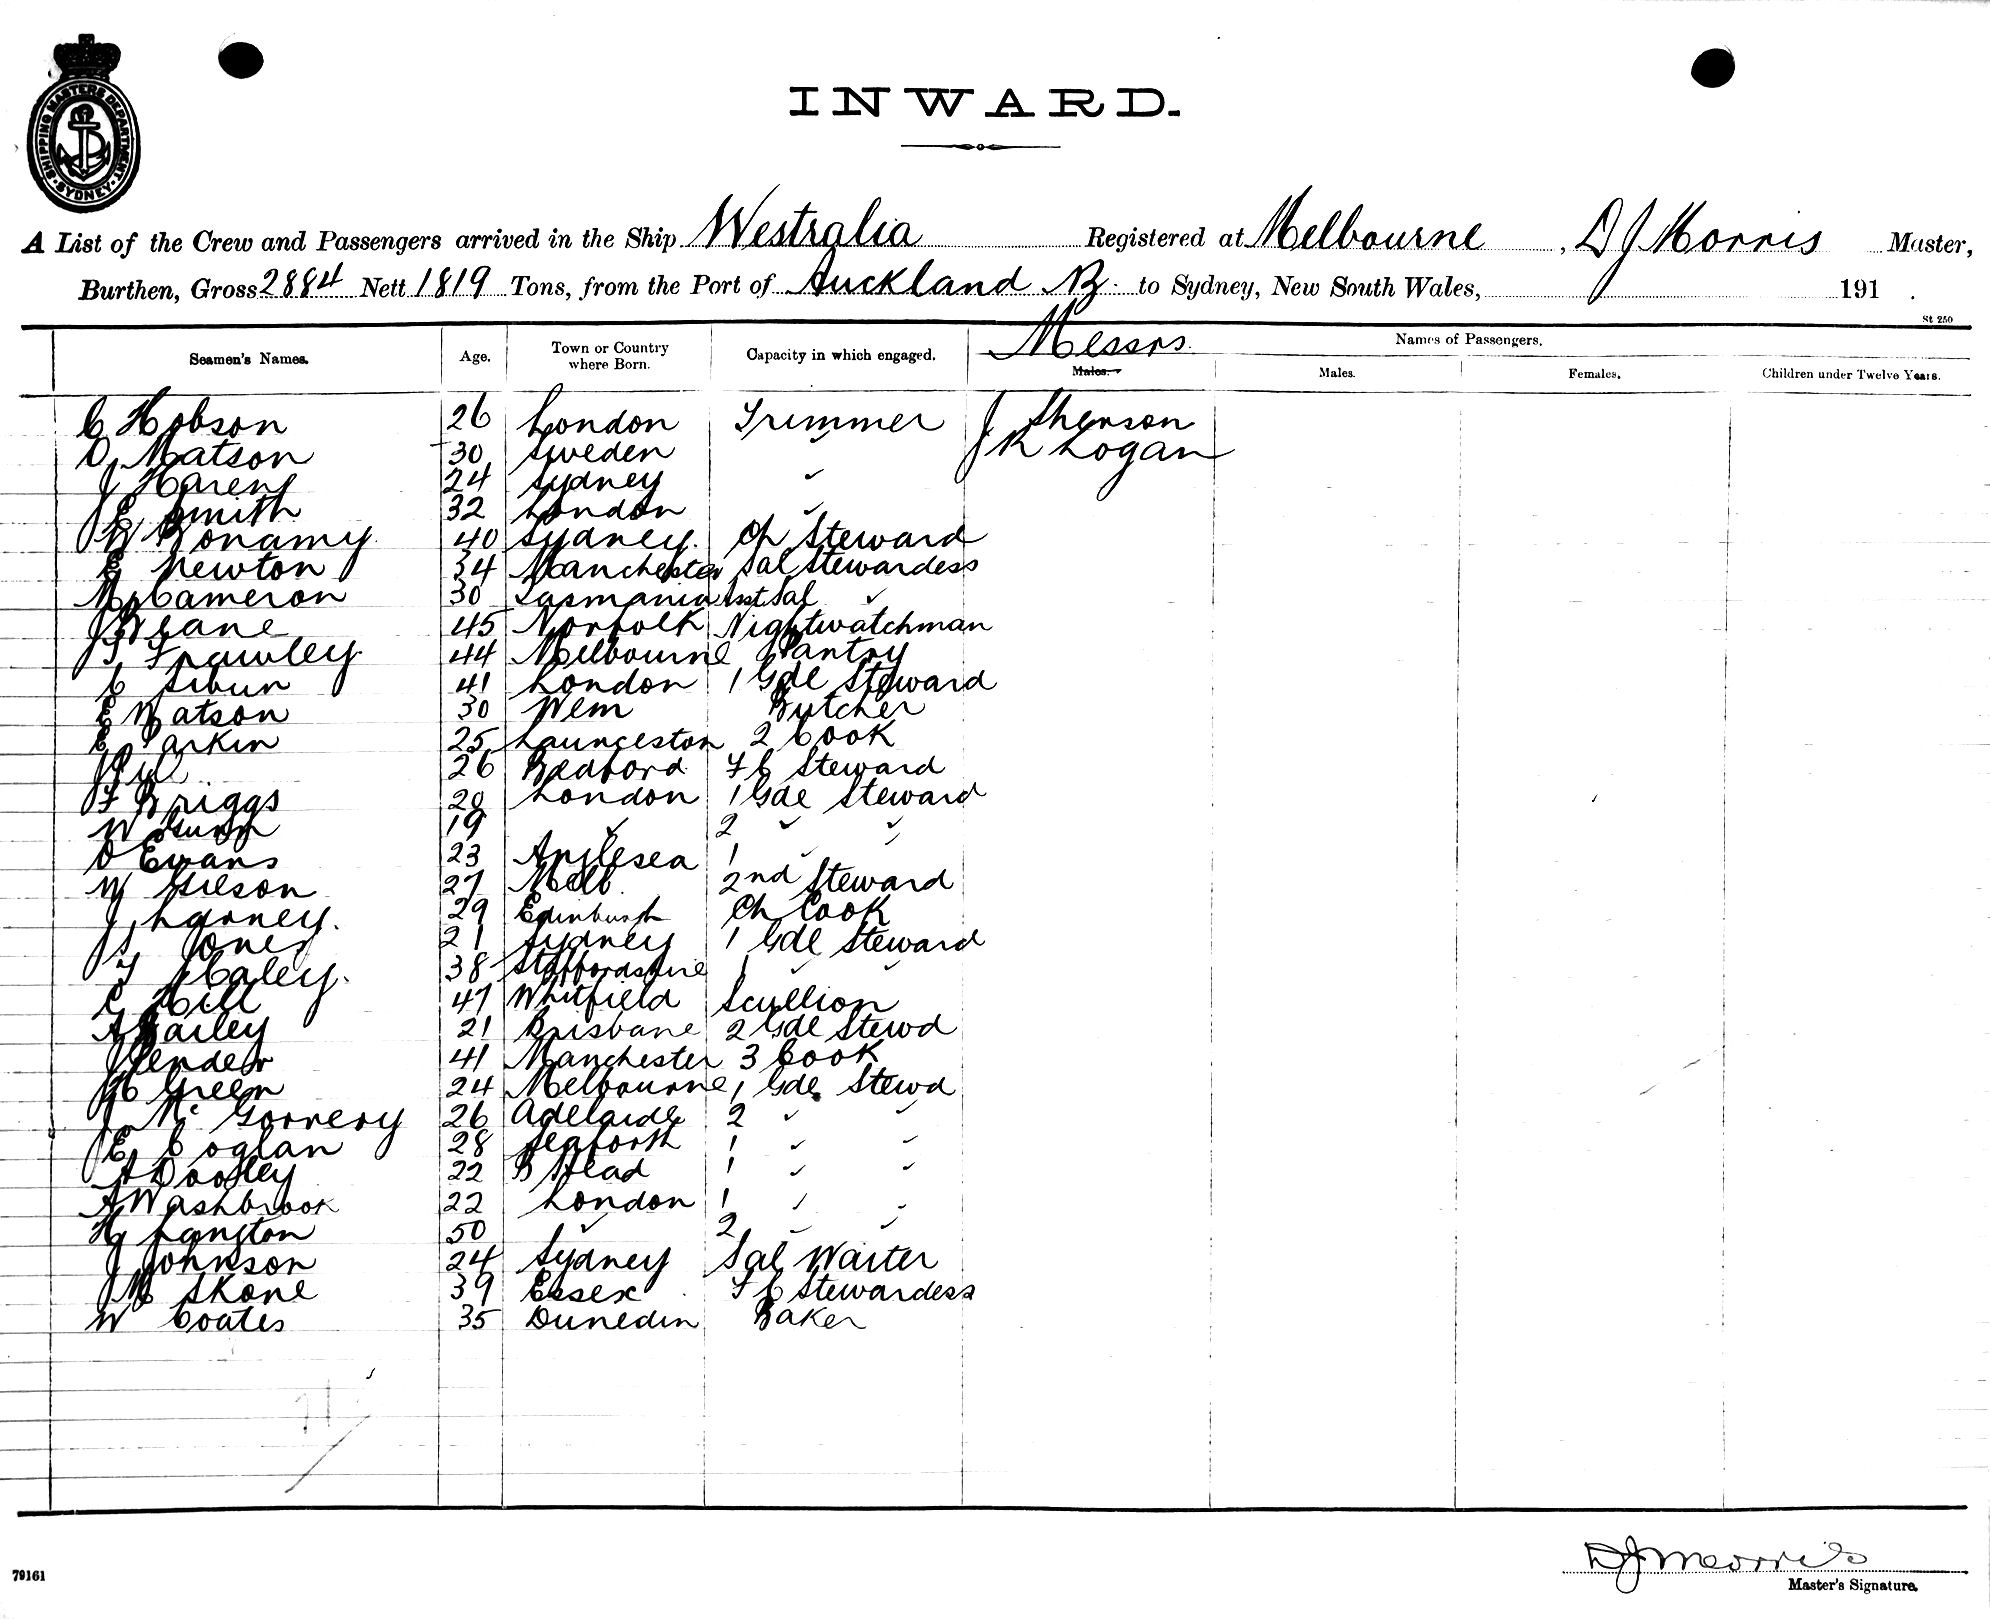 SHIPPING MASTERS DEPARTMENT
SYDNEY
INWARD.
A List of the Crew and Passengers arrived in the Ship Westralia Registered at Melbourne, D J Morris Master,
Burthen, Gross 2884 Nett 1819 Tons, from the Port of Auckland NZ to Sydney, New South Wales, 191 .
St 250
Seamen's Names. Age. Town or Country where Born. Capacity in which engaged. Messrs. Names of Passengers.
Males. Males. Females. Children under Twelve Years.
C Hobson 26 London Trimmer J Shenson
D Matson 30 Sweden ✓ J R Logan
J Hareny 24 Sydney ✓
J E Smith 32 London ✓
W Bonamy 40 Sydney. Ch Steward
E Newton 34 Manchester Sal Stewardess
M Cameron 30 Tasmania Asst Sal ✓
J Beane 45 Norfolk Nightwatchman
Frawley 44 Melbourne Pantry
C Sibun 41 London 1 Gde Steward
E Watson 30 Wem Butcher
E Parkin 25 Launceston 2 Cook
26 Bedford F C Steward
F Briggs 20 London 1 Gde Steward
W Gunn 19 ✓ 2 ✓ ✓
D Evans 23 Anglesea 1 ✓ ✓
W Gilson 27 Melb 2nd Steward
J Larney. 29 Edinburgh Ch Cook
Jones 21 Sydney 1 Gde Steward
Haley. 38 Staffordshire 1 ✓ ✓
C Hill 47 Whitfield Scullion
A Bailey 21 Brisbane 2 Gde Stewd
J Pender 41 Manchester 3 Cook
H Green 24 Melbourne 1 Gde Stewd
J Mc Gorrery 26 Adelaide 2 ✓ ✓
E Coglan 28 Seaforth 1 ✓ ✓
A Dooley 22 B Head 1 ✓ ✓
A Washbrook 22 London 1 ✓ ✓
H Langton 50 ✓ 2 ✓ ✓
J Johnson 24 Sydney Sal Waiter
M Skone 39 Essex F C Stewardess
W Coates 35 Dunedin Baker
D J Morris
79161 Master's Signature.